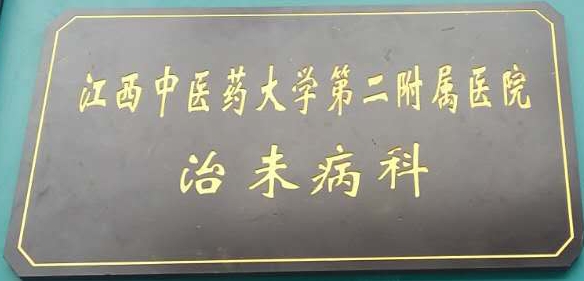 江西中医药大学第二附属医院
治未病科